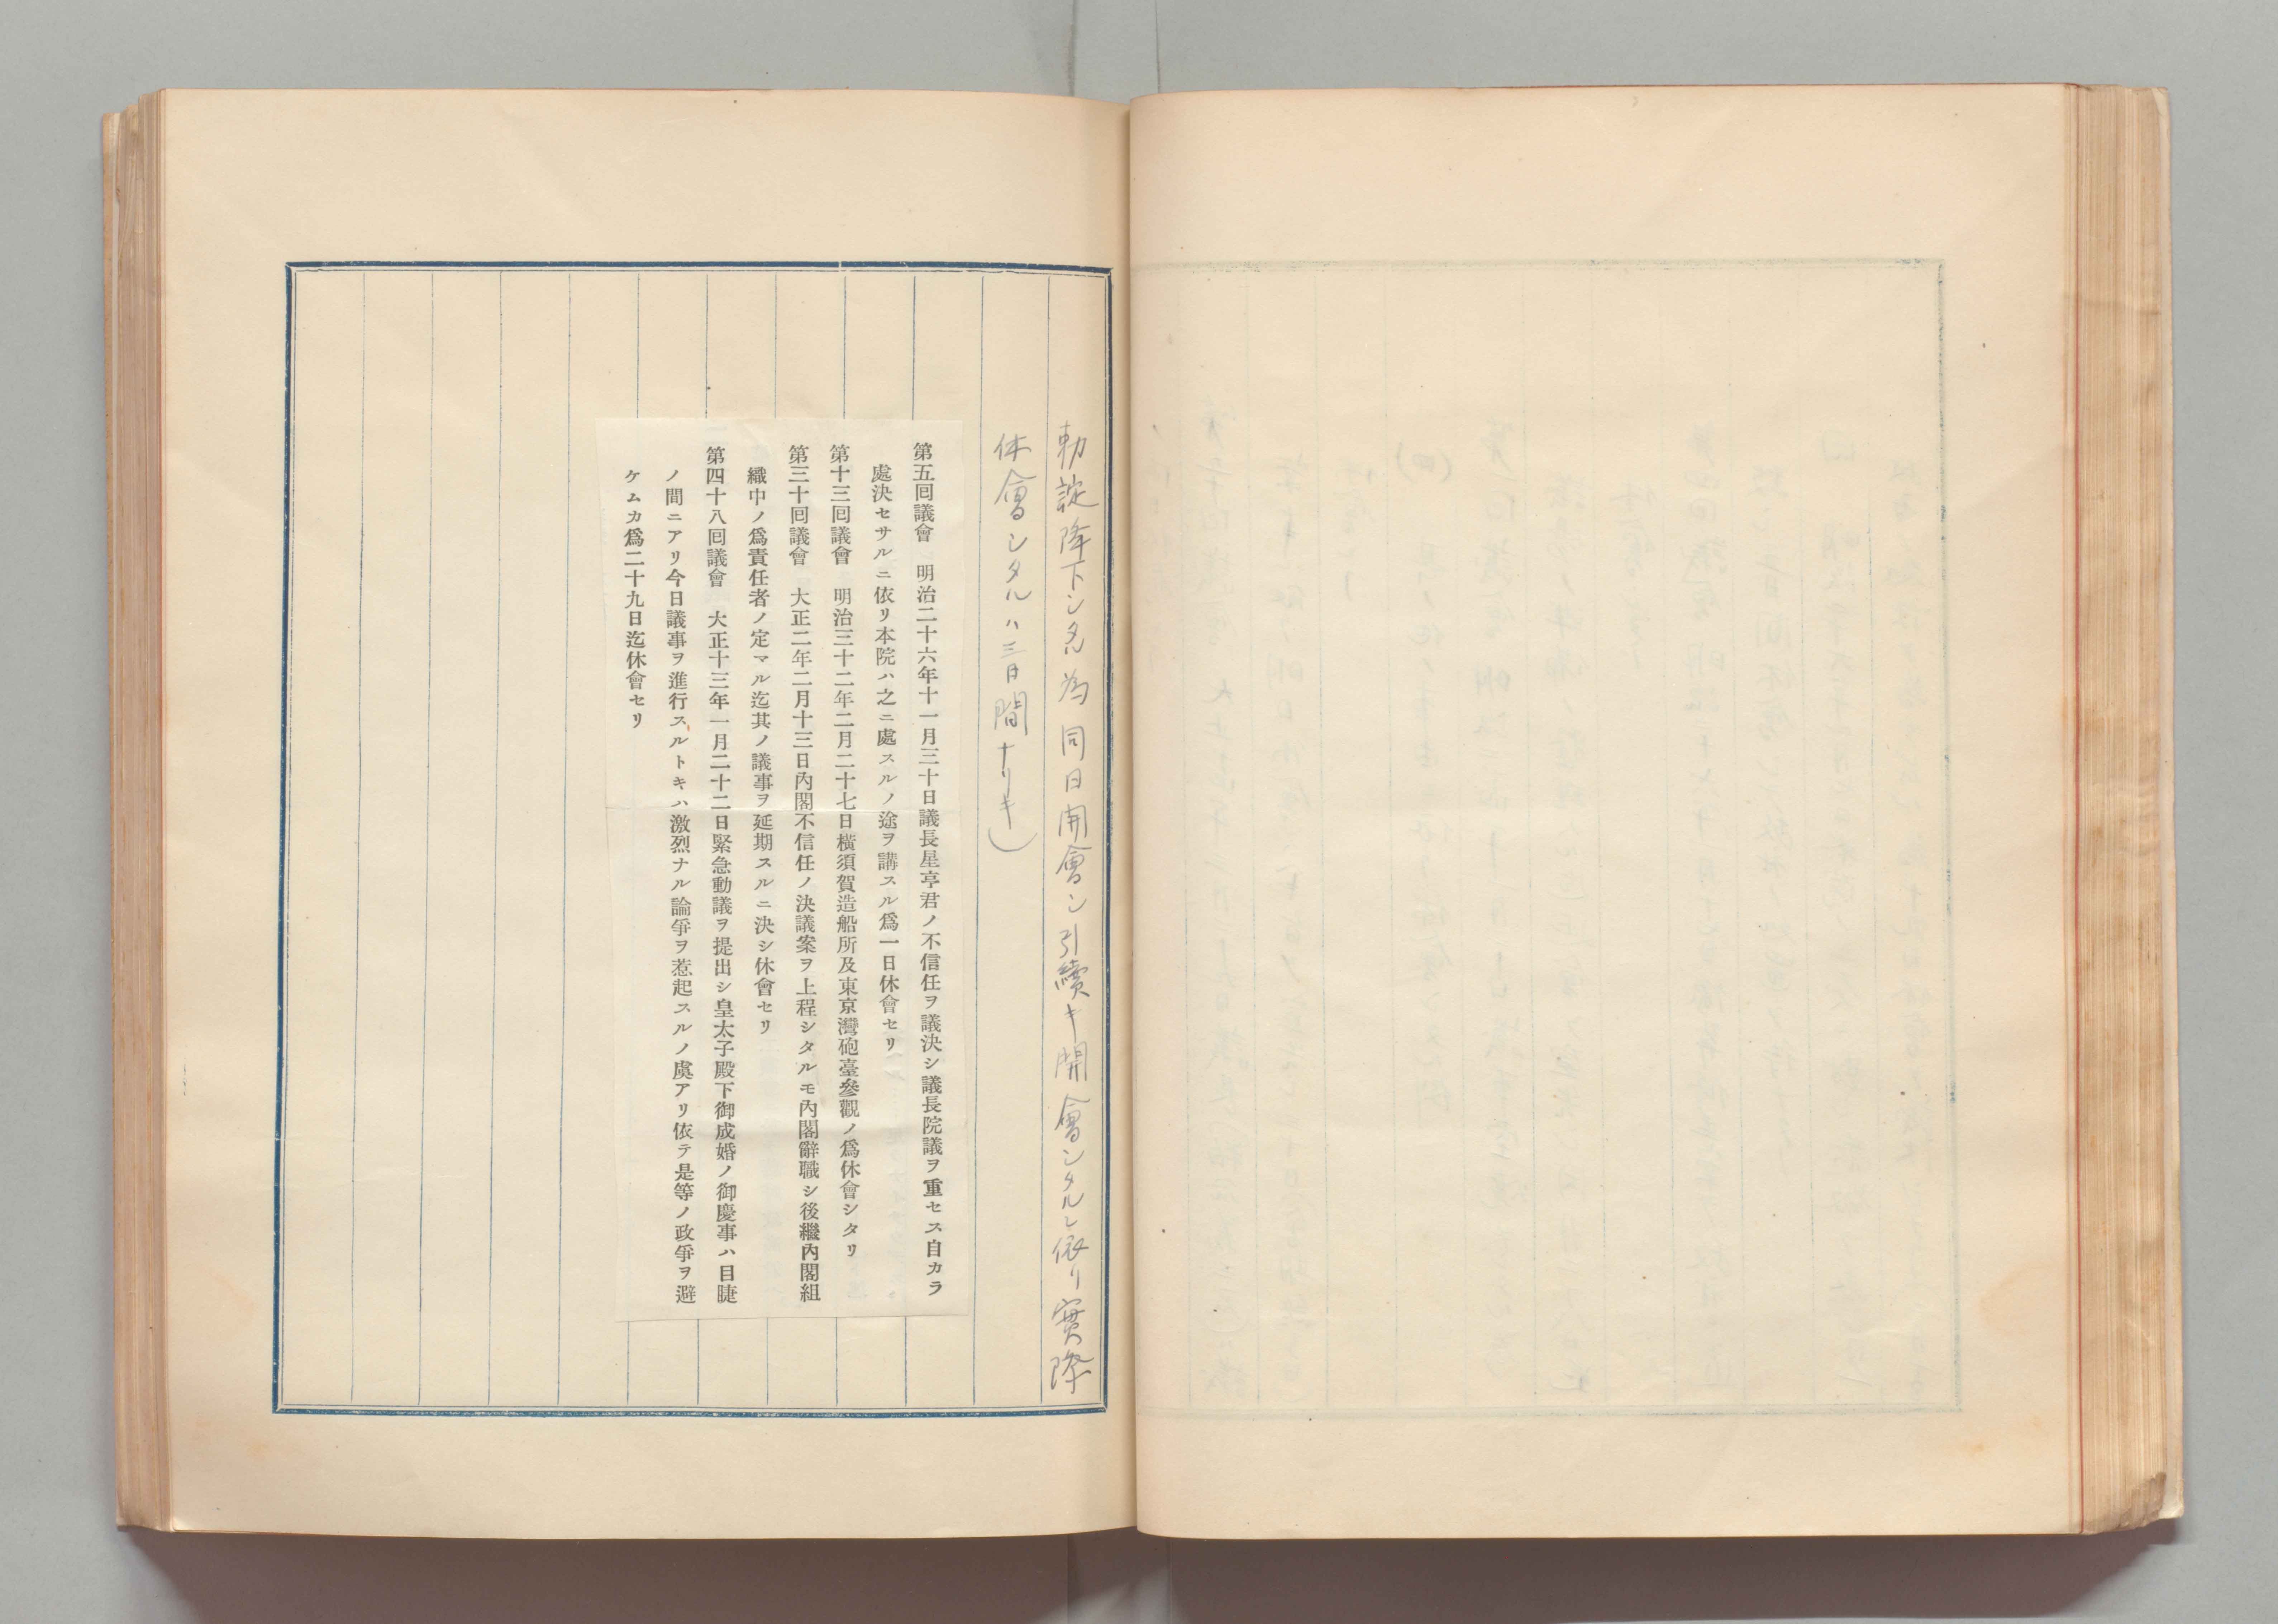 勅諚降下シタル為同日開會シ引續キ開會シタルニ依リ實際
休會シタルハ三日間ナリキ)
第五囘議會　明治二十六年十一月三十日議長星亨君ノ不信任ヲ議決シ議長院議ヲ重セス自カラ
處決セサルニ依リ本院ハ之ニ處スルノ途ヲ講スル爲一日休會セリ
第十三囘議會　明治三十二年二月二十七日橫須賀造船所及東京灣砲臺參觀ノ爲休會シタリ
第三十囘議會　大正二年二月十三日內閣不信任ノ決議案ヲ上程シタルモ內閣辭職シ後繼內閣組
織中ノ爲責任者ノ定マル迄其ノ議事ヲ延期スルニ決シ休會セリ
第四十八囘議會　大正十三年一月二十二日緊急動議ヲ提出シ皇太子殿下御成婚ノ御慶事ハ目睫
ノ間ニアリ今日議事ヲ進行スルトキハ激烈ナル論爭ヲ惹起スルノ虞アリ依テ是等ノ政爭ヲ避
ケムカ爲二十九日迄休會セリ